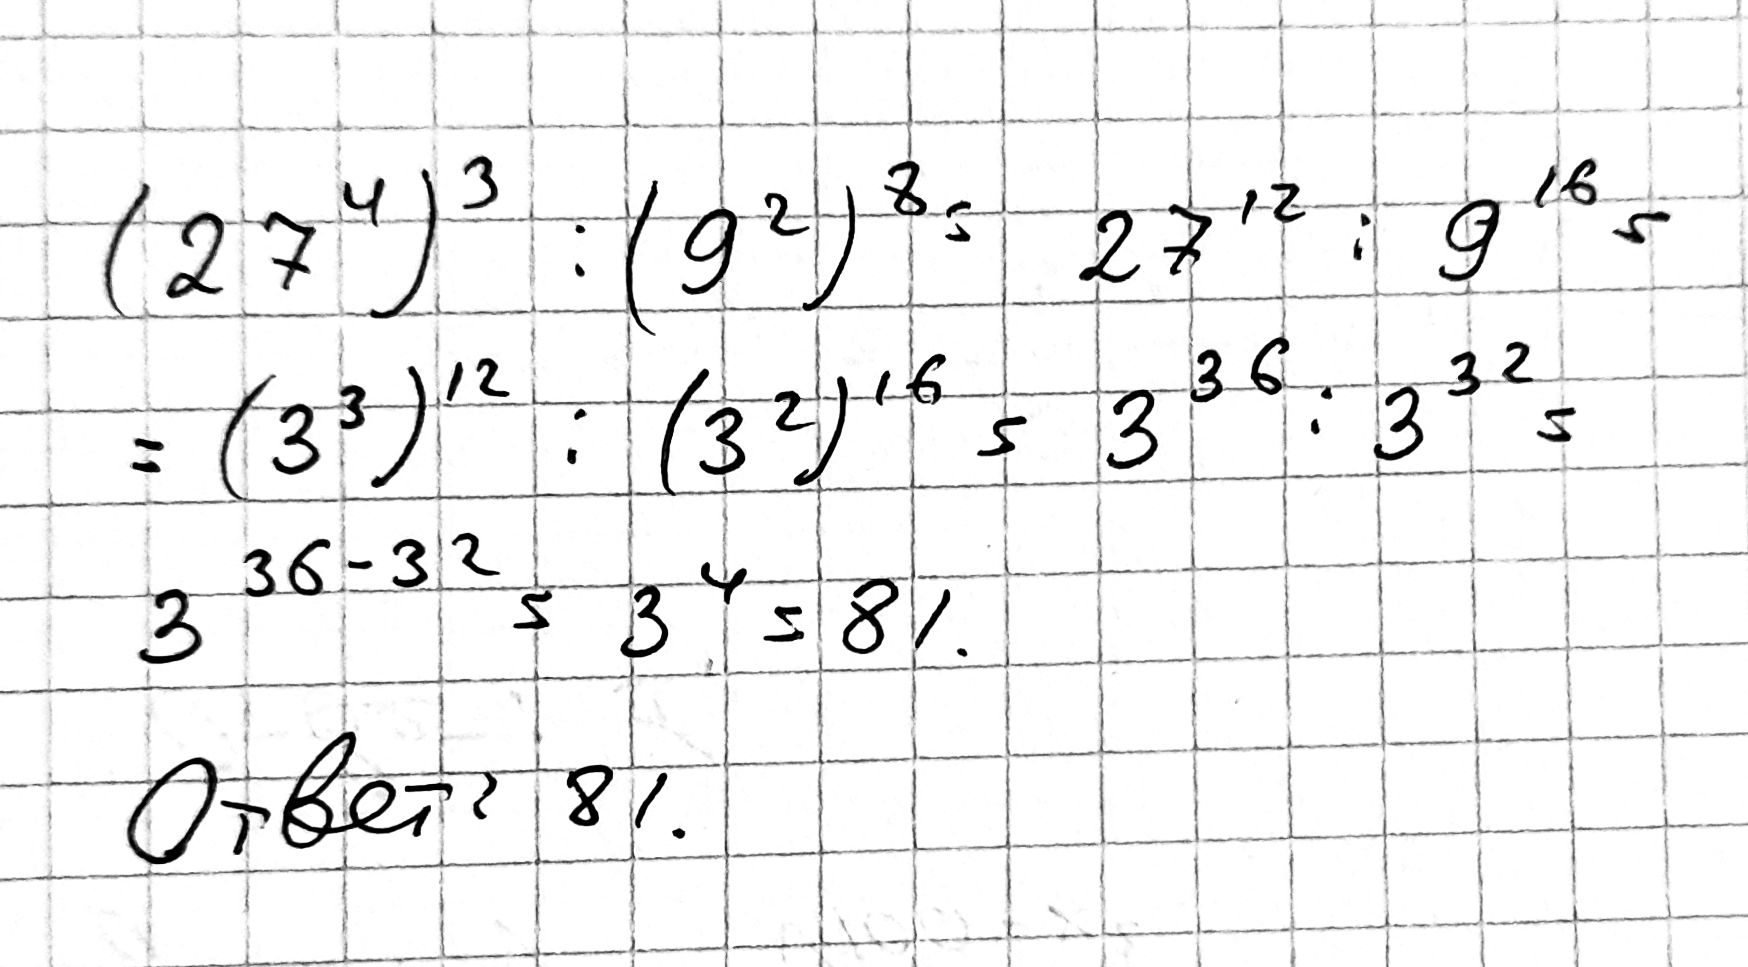 (27⁴)³ : (9²)⁸ = 27¹² : 9¹⁶ =
= (3³)¹² : (3²)¹⁶ = 3³⁶ : 3³² =
3³⁶⁻³² = 3⁴ = 81.
Ответ: 81.